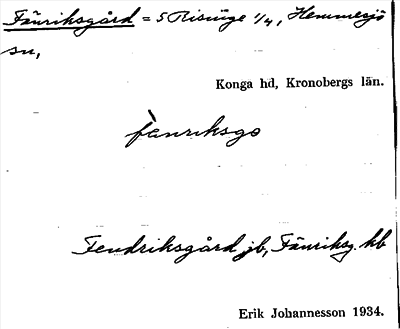 Fänriksgård = S Risinge 1/4, Hemmesjö
sn,
Konga hd, Kronobergs län.
fànriksgo
Fendriksgård jb, Fänriksg. kb
Erik Johannesson 1934.